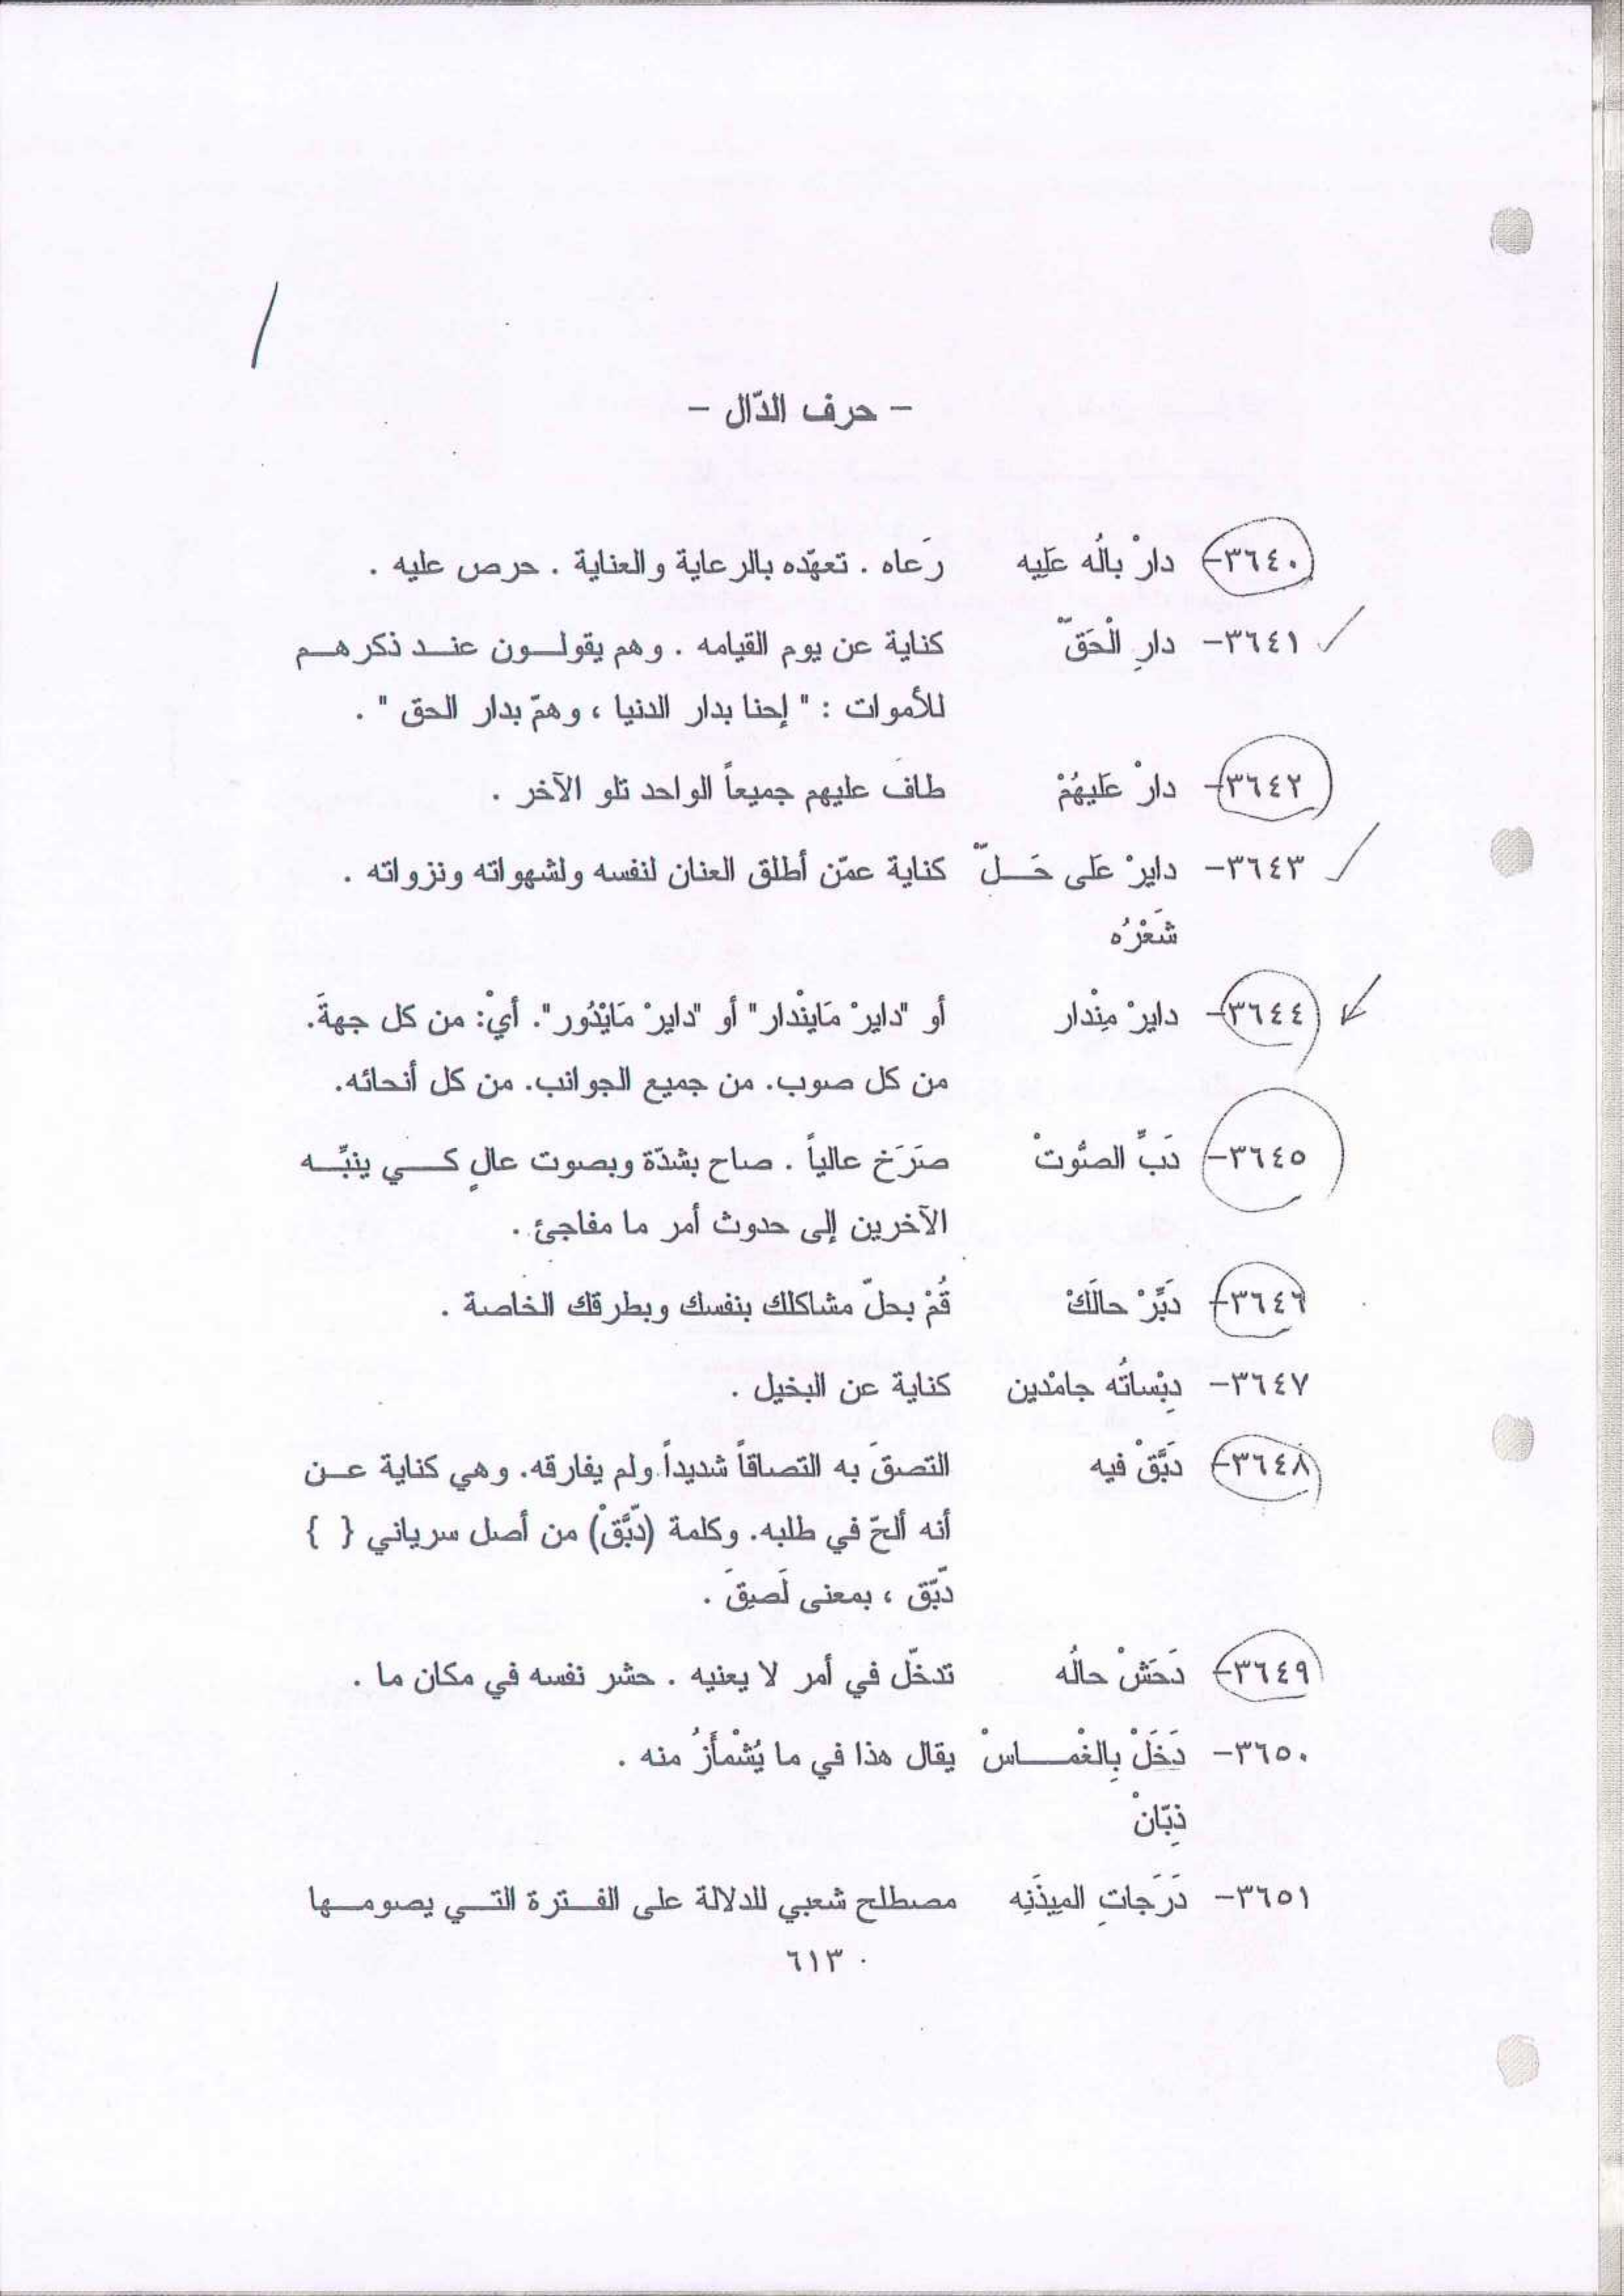 - حرف الدّال -
٣٦٤٠- دارْ بالُه عَليه رَعاه . تعهّده بالرعاية والعناية . حرص عليه .
٣٦٤١- دارِ الْحَقّ كناية عن يوم القيامه . وهم يقولون عند ذكرهم
للأموات : " إحنا بدار الدنيا ، وهمّ بدار الحق " .
٣٦٤٢- دارْ عَليهُمْ طافَ عليهم جميعاً الواحد تلو الآخر .
٣٦٤٣- دايرْ عَلى حَلّ كناية عمّن أطلق العنان لنفسه ولشهواته ونزواته .
شَعْرُه
٣٦٤٤- دايرْ مِنْدار أو "دايرْ مَاينْدار" أو "دايرْ مَايْدُور". أيْ: من كل جهةَ.
من كل صوب. من جميع الجوانب. من كل أنحائه.
٣٦٤٥- دَبِّ الصُّوتْ صَرَخ عالياً . صاح بشدّة وبصوت عالٍ كي ينبّه
الآخرين إلى حدوث أمر ما مفاجئ .
٣٦٤٦- دَبِّرْ حالَكْ قُمْ بحلّ مشاكلك بنفسك وبطرقك الخاصة .
٣٦٤٧- دِبْساتُه جامْدين كناية عن البخيل .
٣٦٤٨- دَبَّقْ فيه التصقَ به التصاقاً شديداً ولم يفارقه. وهي كناية عن
أنه ألحّ في طلبه. وكلمة (دَبَّقْ) من أصل سرياني { }
دَبّق ، بمعنى لَصِقَ .
٣٦٤٩- دَحَشْ حالُه تدخّل في أمر لا يعنيه . حشر نفسه في مكان ما .
٣٦٥٠- دَخَلْ بِالغْماسْ يقال هذا في ما يُشْمأَزُ منه .
ذِبّانْ
٣٦٥١- دَرَجاتِ الميِذَنِه مصطلح شعبي للدلالة على الفترة التي يصومها
٦١٣